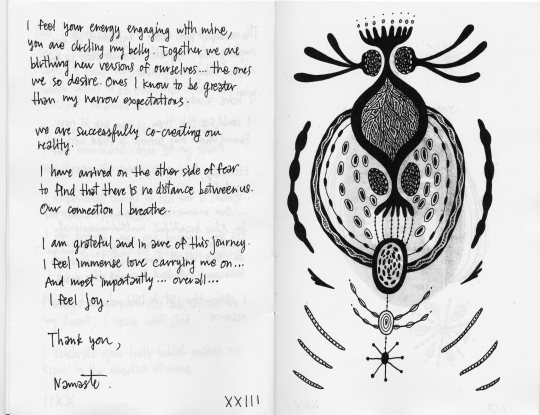 I feel your energy engaging with mine,
you are circling my belly. Together we are
birthing new versions of ourselves... the ones
we so desire. Ones I know to be greater
than my narrow expectations.
we are successfully co-creating our
reality.
I have arrived on the other side of fear
to find that there is no distance between us.
Our connection I breathe.
I am grateful and in awe of this journey.
I feel immense love carrying me on...
And most importantly... overall...
I feel joy.
Thank you,
Namaste.
XXIII